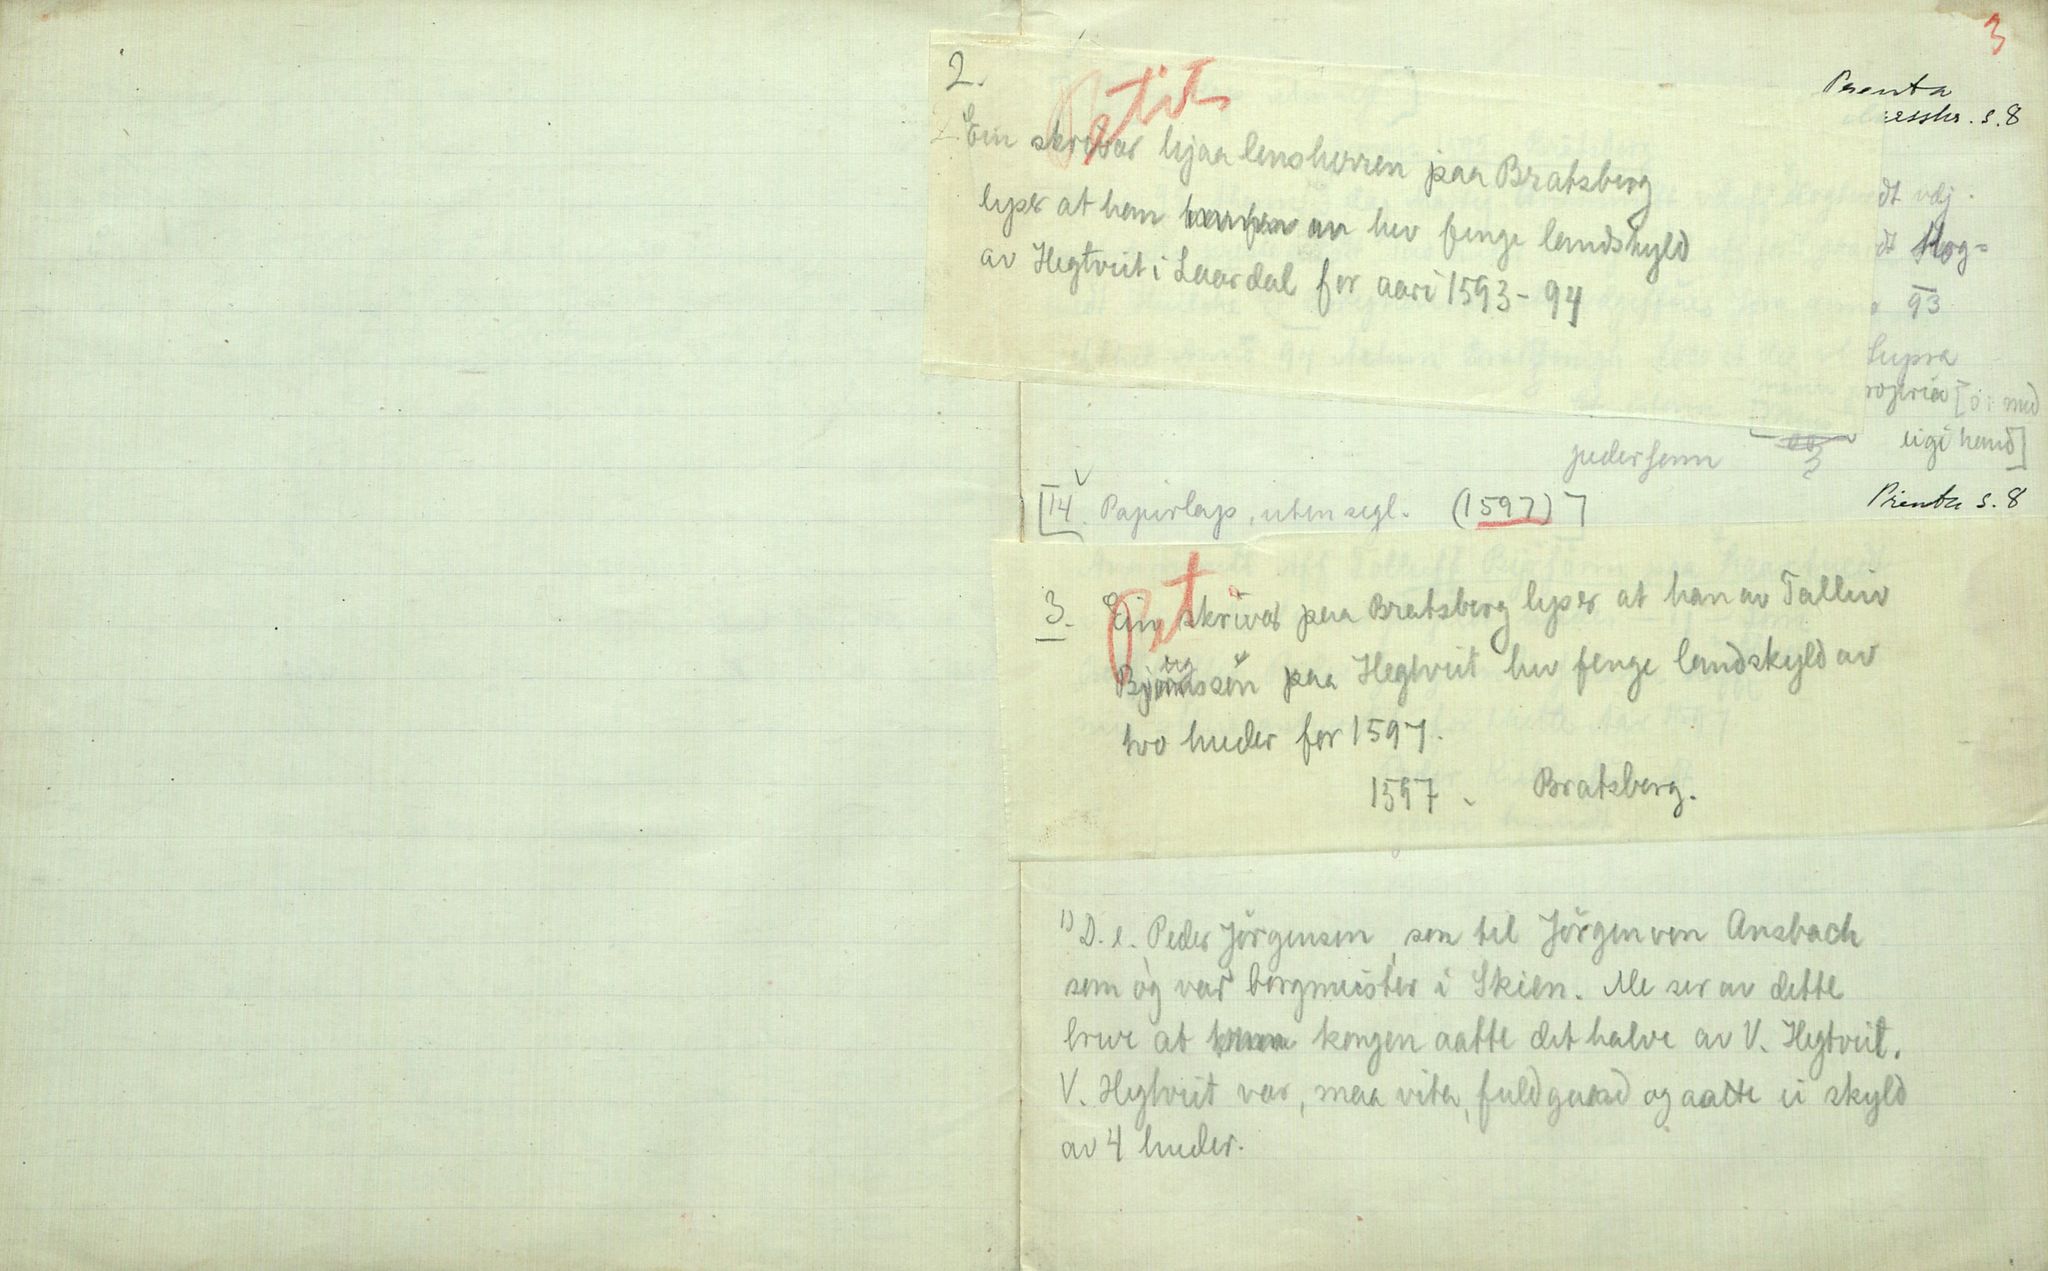 3
2.
Petit
Prenta
s. 8
Ein skrivar hjaa lensherren paa Bratsberg
lyser at han hev fenge landskyld
av Hegtveit i Laardal for aari 1593-94
dt vdj.
dt Hog=
93
Supra
[ɔ: med
eigi hand]
pedersenn
[14. Papirlap, uten segl. (1597)]
Prenta s. 8
Pet
3. Ein skrivar paa Bratsberg lyser at han av Talleiv
paa Hegtveit hev fenge landskyld av
tvo huder for 1597.
1597. Bratsberg.
1) D. e. Peder Jörgensen, son til Jörgen von Ansbach
som òg var bergmeister i Skien. Me ser av dette
breve at kongen aatte det halve av V. Hegtveit.
V. Hegtveit var, maa vita, fuldgard og aatte ei skyld
av 4 huder.